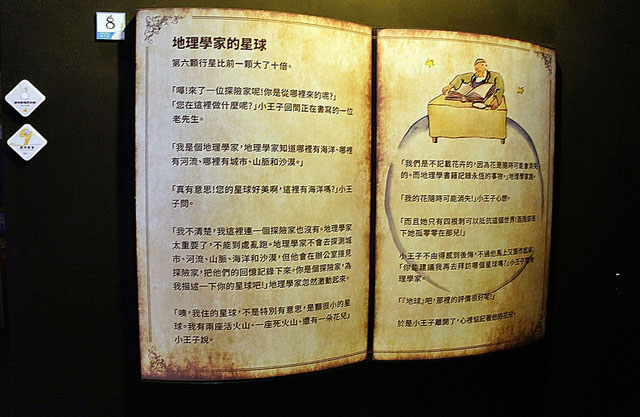 8
地理學家的星球
第六顆行星比前一顆大了十倍。
「嘩!來了一位探險家呢!你是從哪裡來的呢?」
「您在這裡做什麼呢?」小王子回問正在書寫的一位
老先生。
「我是個地理學家,地理學家知道哪裡有海洋、哪裡
有河流、哪裡有城市、山脈和沙漠。」
「真有意思!您的星球好美啊,這裡有海洋嗎?」小王
子問。
「我不清楚,我這裡連一個探險家也沒有。地理學家
太重要了,不能到處亂跑。地理學家不會去探測城
市、河流、山脈、海洋和沙漠,但他會在辦公室接見
探險家,把他們的回憶記錄下來。你是個探險家,為
我描述一下你的星球吧!」地理學家忽然激動起來。
「噢,我住的星球,不是特別有意思,是顆很小的星
球。我有兩座活火山、一座死火山、還有一朵花兒」
小王子說。
「我們是不記載花卉的,因為花是隨時可能會消失
的。而地理學書籍記錄永恆的事物。」地理學家說。
「我的花隨時可能消失!」小王子心想。
「而且她只有四根刺可以抵抗這個世界!而我卻丟
下她孤零零在那兒!」
小王子不由得感到後悔,不過他馬上又振作起來:
「你能建議我再去拜訪哪個星球嗎?」小王子問地
理學家。
「『地球』吧,那裡的評價很好呢!」
於是小王子離開了,心裡惦記著他的花兒。